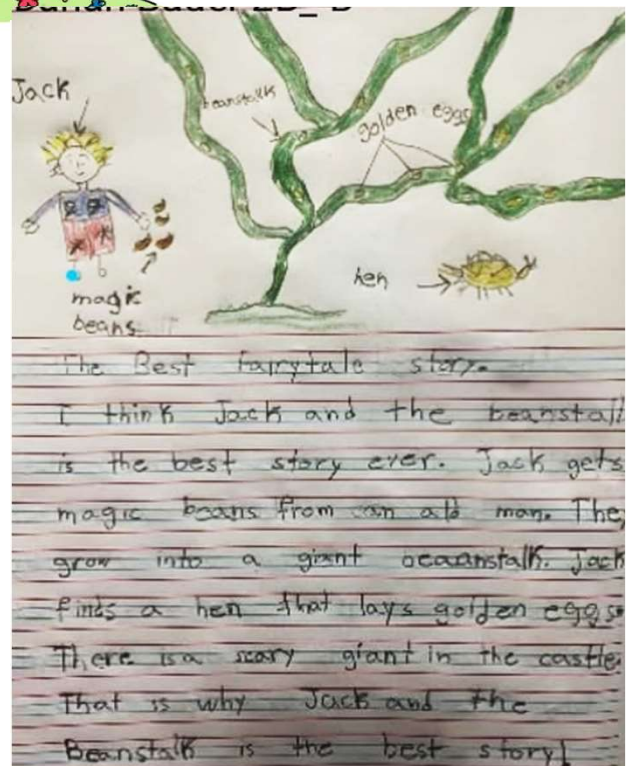 Jack
beanstalk
golden eggs
hen
magic
beans
The Best fairytale story.
I think Jack and the beanstall
is the best story ever. Jack gets
magic beans from an old man. They
grow into a giant beaanstalk. Jack
finds a hen that lays golden eggs.
There is a scary giant in the castle.
That is why Jack and the
Beanstalk is the best story!